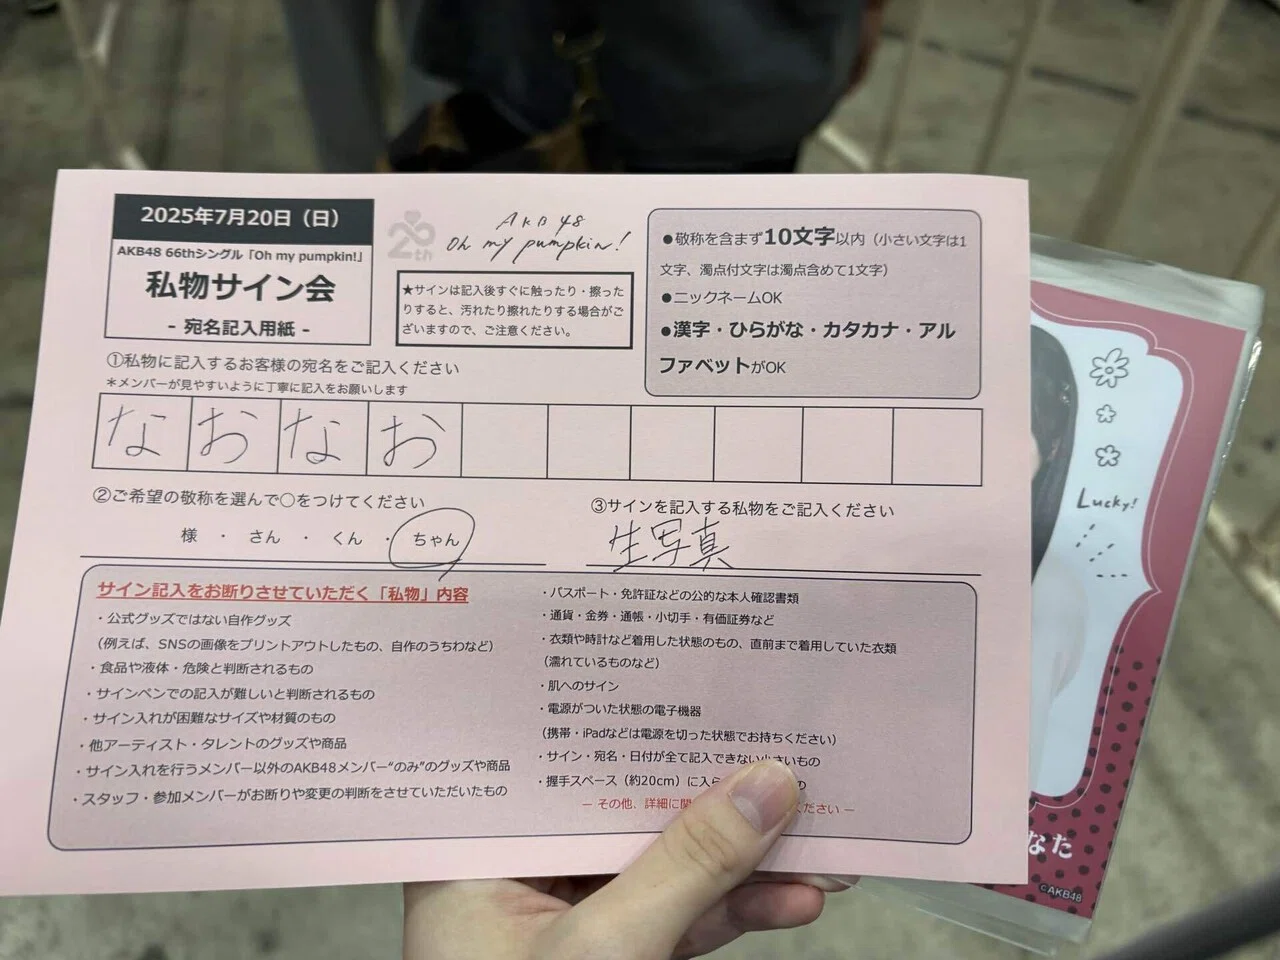 2025年7月20日（日）
AKB48 66thシングル「Oh my pumpkin!」
私物サイン会
- 宛名記入用紙 -
20th
AKB48
Oh my pumpkin!
★サインは記入後すぐに触ったり・擦った
りすると、汚れたり擦れたりする場合がご
ざいますので、ご注意ください。
●敬称を含まず10文字以内（小さい文字は1
文字、濁点付文字は濁点含めて1文字）
●ニックネームOK
●漢字・ひらがな・カタカナ・アル
ファベットがOK
①私物に記入するお客様の宛名をご記入ください
＊メンバーが見やすいように丁寧に記入をお願いします
なおなお
②ご希望の敬称を選んで○をつけてください
様 ・ さん ・ くん ・ ちゃん
③サインを記入する私物をご記入ください
生写真
サイン記入をお断りさせていただく「私物」内容
・公式グッズではない自作グッズ
（例えば、SNSの画像をプリントアウトしたもの、自作のうちわなど）
・食品や液体・危険と判断されるもの
・サインペンでの記入が難しいと判断されるもの
・サイン入れが困難なサイズや材質のもの
・他アーティスト・タレントのグッズや商品
・サイン入れを行うメンバー以外のAKB48メンバー“のみ”のグッズや商品
・スタッフ・参加メンバーがお断りや変更の判断をさせていただいたもの
・パスポート・免許証などの公的な本人確認書類
・通貨・金券・通帳・小切手・有価証券など
・衣類や時計など着用した状態のもの、直前まで着用していた衣類
（濡れているものなど）
・肌へのサイン
・電源がついた状態の電子機器
（携帯・iPadなどは電源を切った状態でお持ちください）
・サイン・宛名・日付が全て記入できない小さいもの
・握手スペース（約20cm）に入ら
の
― その他、詳細に関
ください ―
Lucky!
なた
©AKB48